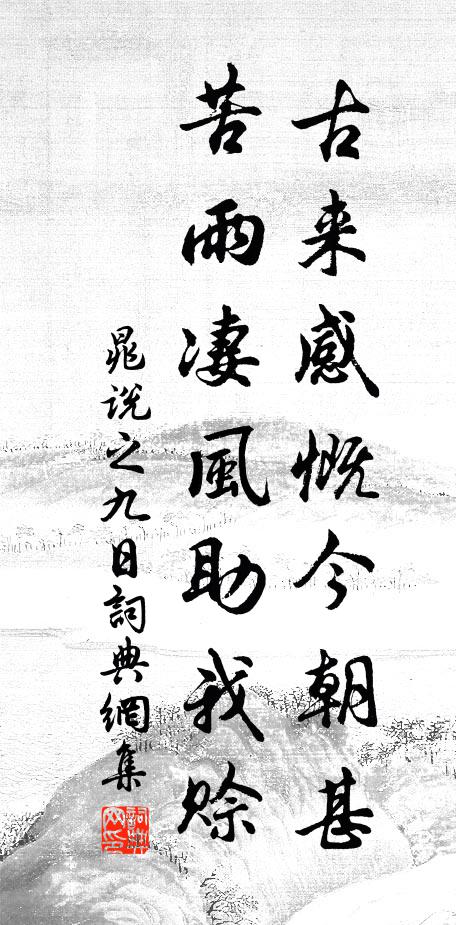 古来感慨今朝甚
苦雨凄風助我赊
晁说之九日詞典網集